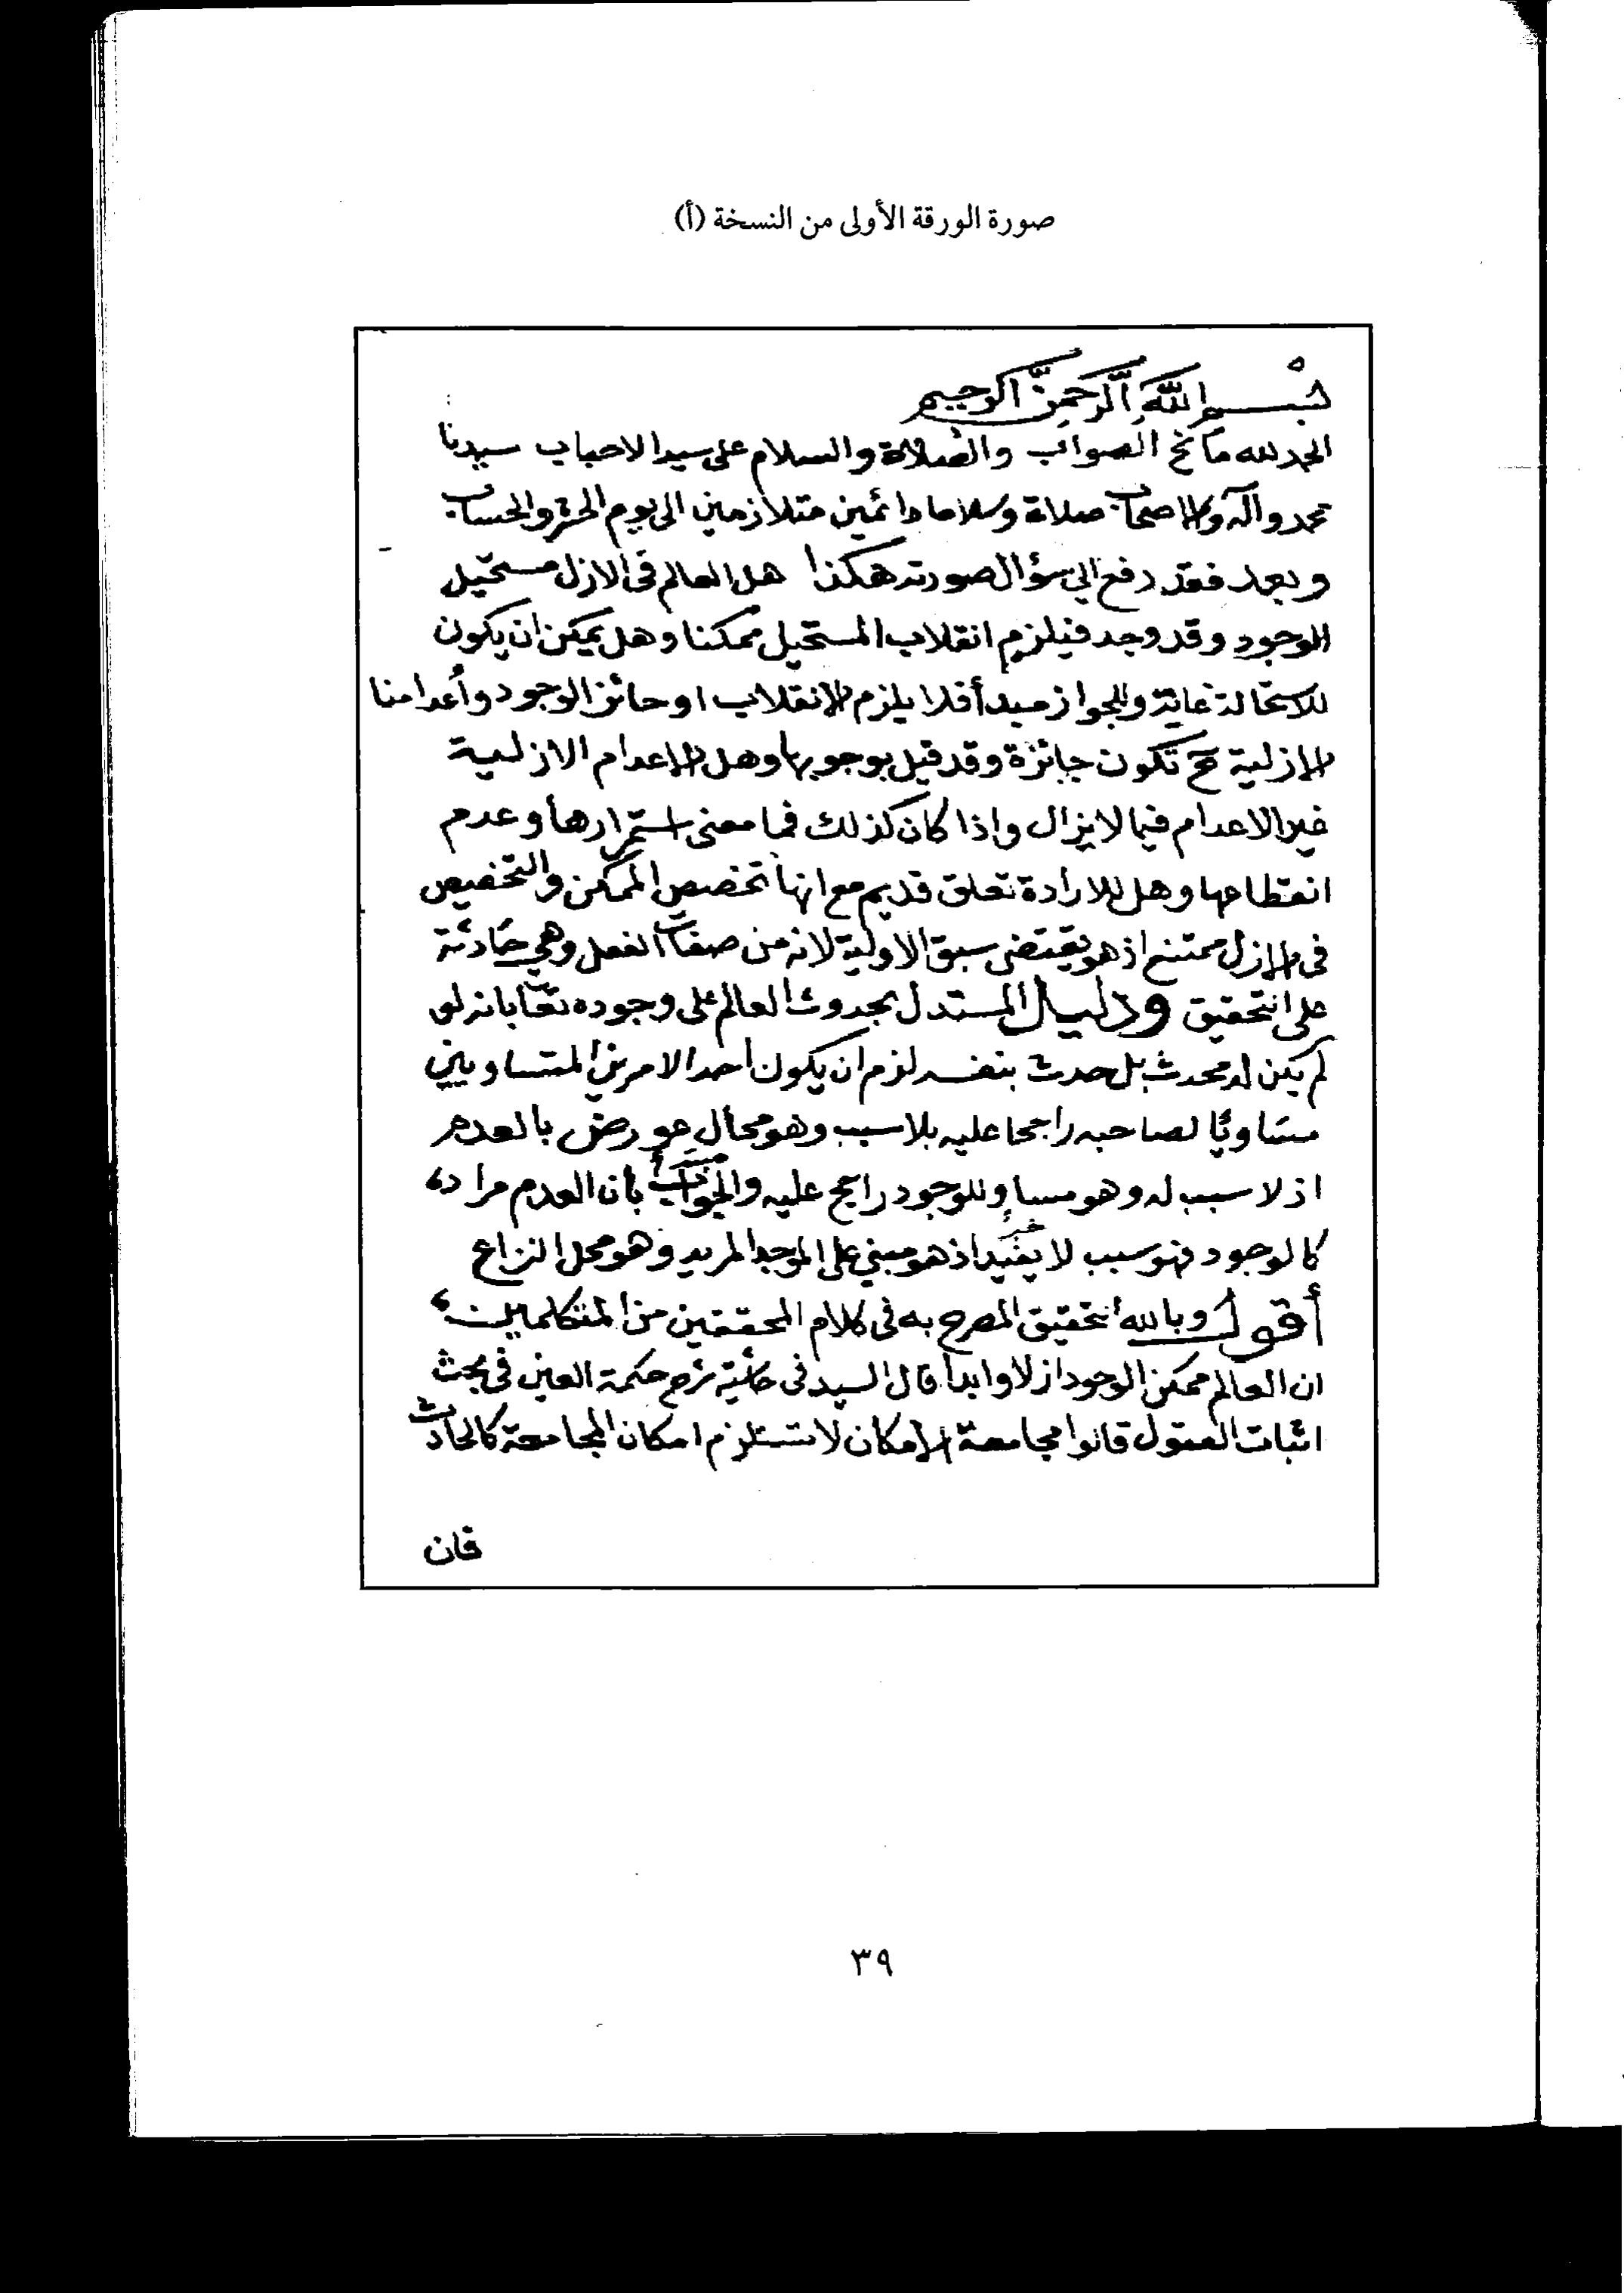 صورة الورقة الأولى من النسخة (أ)
بسم اللهِ الرَّحمنِ الرحيم
الحمد لله مانح الصواب والصلاة والسلام على سيد الاحباب سيدنا
محمد وآله والاصحاب صلاة وسلاما دائمين متلازمين الى يوم الحشر والحساب
وبعد فقد رفع الي سؤال صورته هكذا هل العالم فى الازل مستحيل
الوجود وقد وجد فيلزم انقلاب المستحيل ممكنا وهل يمكن ان يكون
للاستحالة غاية وللجواز مبدأ فلا يلزم الانقلاب او جائز الوجود وأعدامنا
الازلية ح تكون جائزة وقد قيل بوجوبها وهل الاعدام الازلية
غير الاعدام فيما لا يزال واذا كان كذلك فما معنى استمرارها وعدم
انقطاعها وهل للارادة تعلق قديم مع انها تخصص الممكن والتخصيص
فى الازل ممتنع اذ هو يقتضى سبق الاولية لانه من صفات الفعل وهي حادثة
على التحقيق ودليل المستدل بحدوث العالم على وجوده تعا بانه لو
لم يكن له محدث بل حدث بنفسه لزم ان يكون احد الامرين المتساويين
مساويًا لصاحبه راجحا عليه بلا سبب وهو محال عورض بالعدم
اذ لا سبب له وهو مساو للوجود راجح عليه والجواب بأن العدم مراده
كالوجود فهو سبب لا يفيد اذ هو مبني على الموجد المريد وهو محل النزاع
أقول وبالله التحقيق المصرح به فى كلام المحققين من المتكلمين
ان العالم ممكن الوجود ازلا وابدا قال السيد فى حاشية شرح حكمة العين فى بحث
اثبات العقول قالوا مجامعة الامكان لا تستلزم امكان المجامعة كالحادث
فان
٣٩